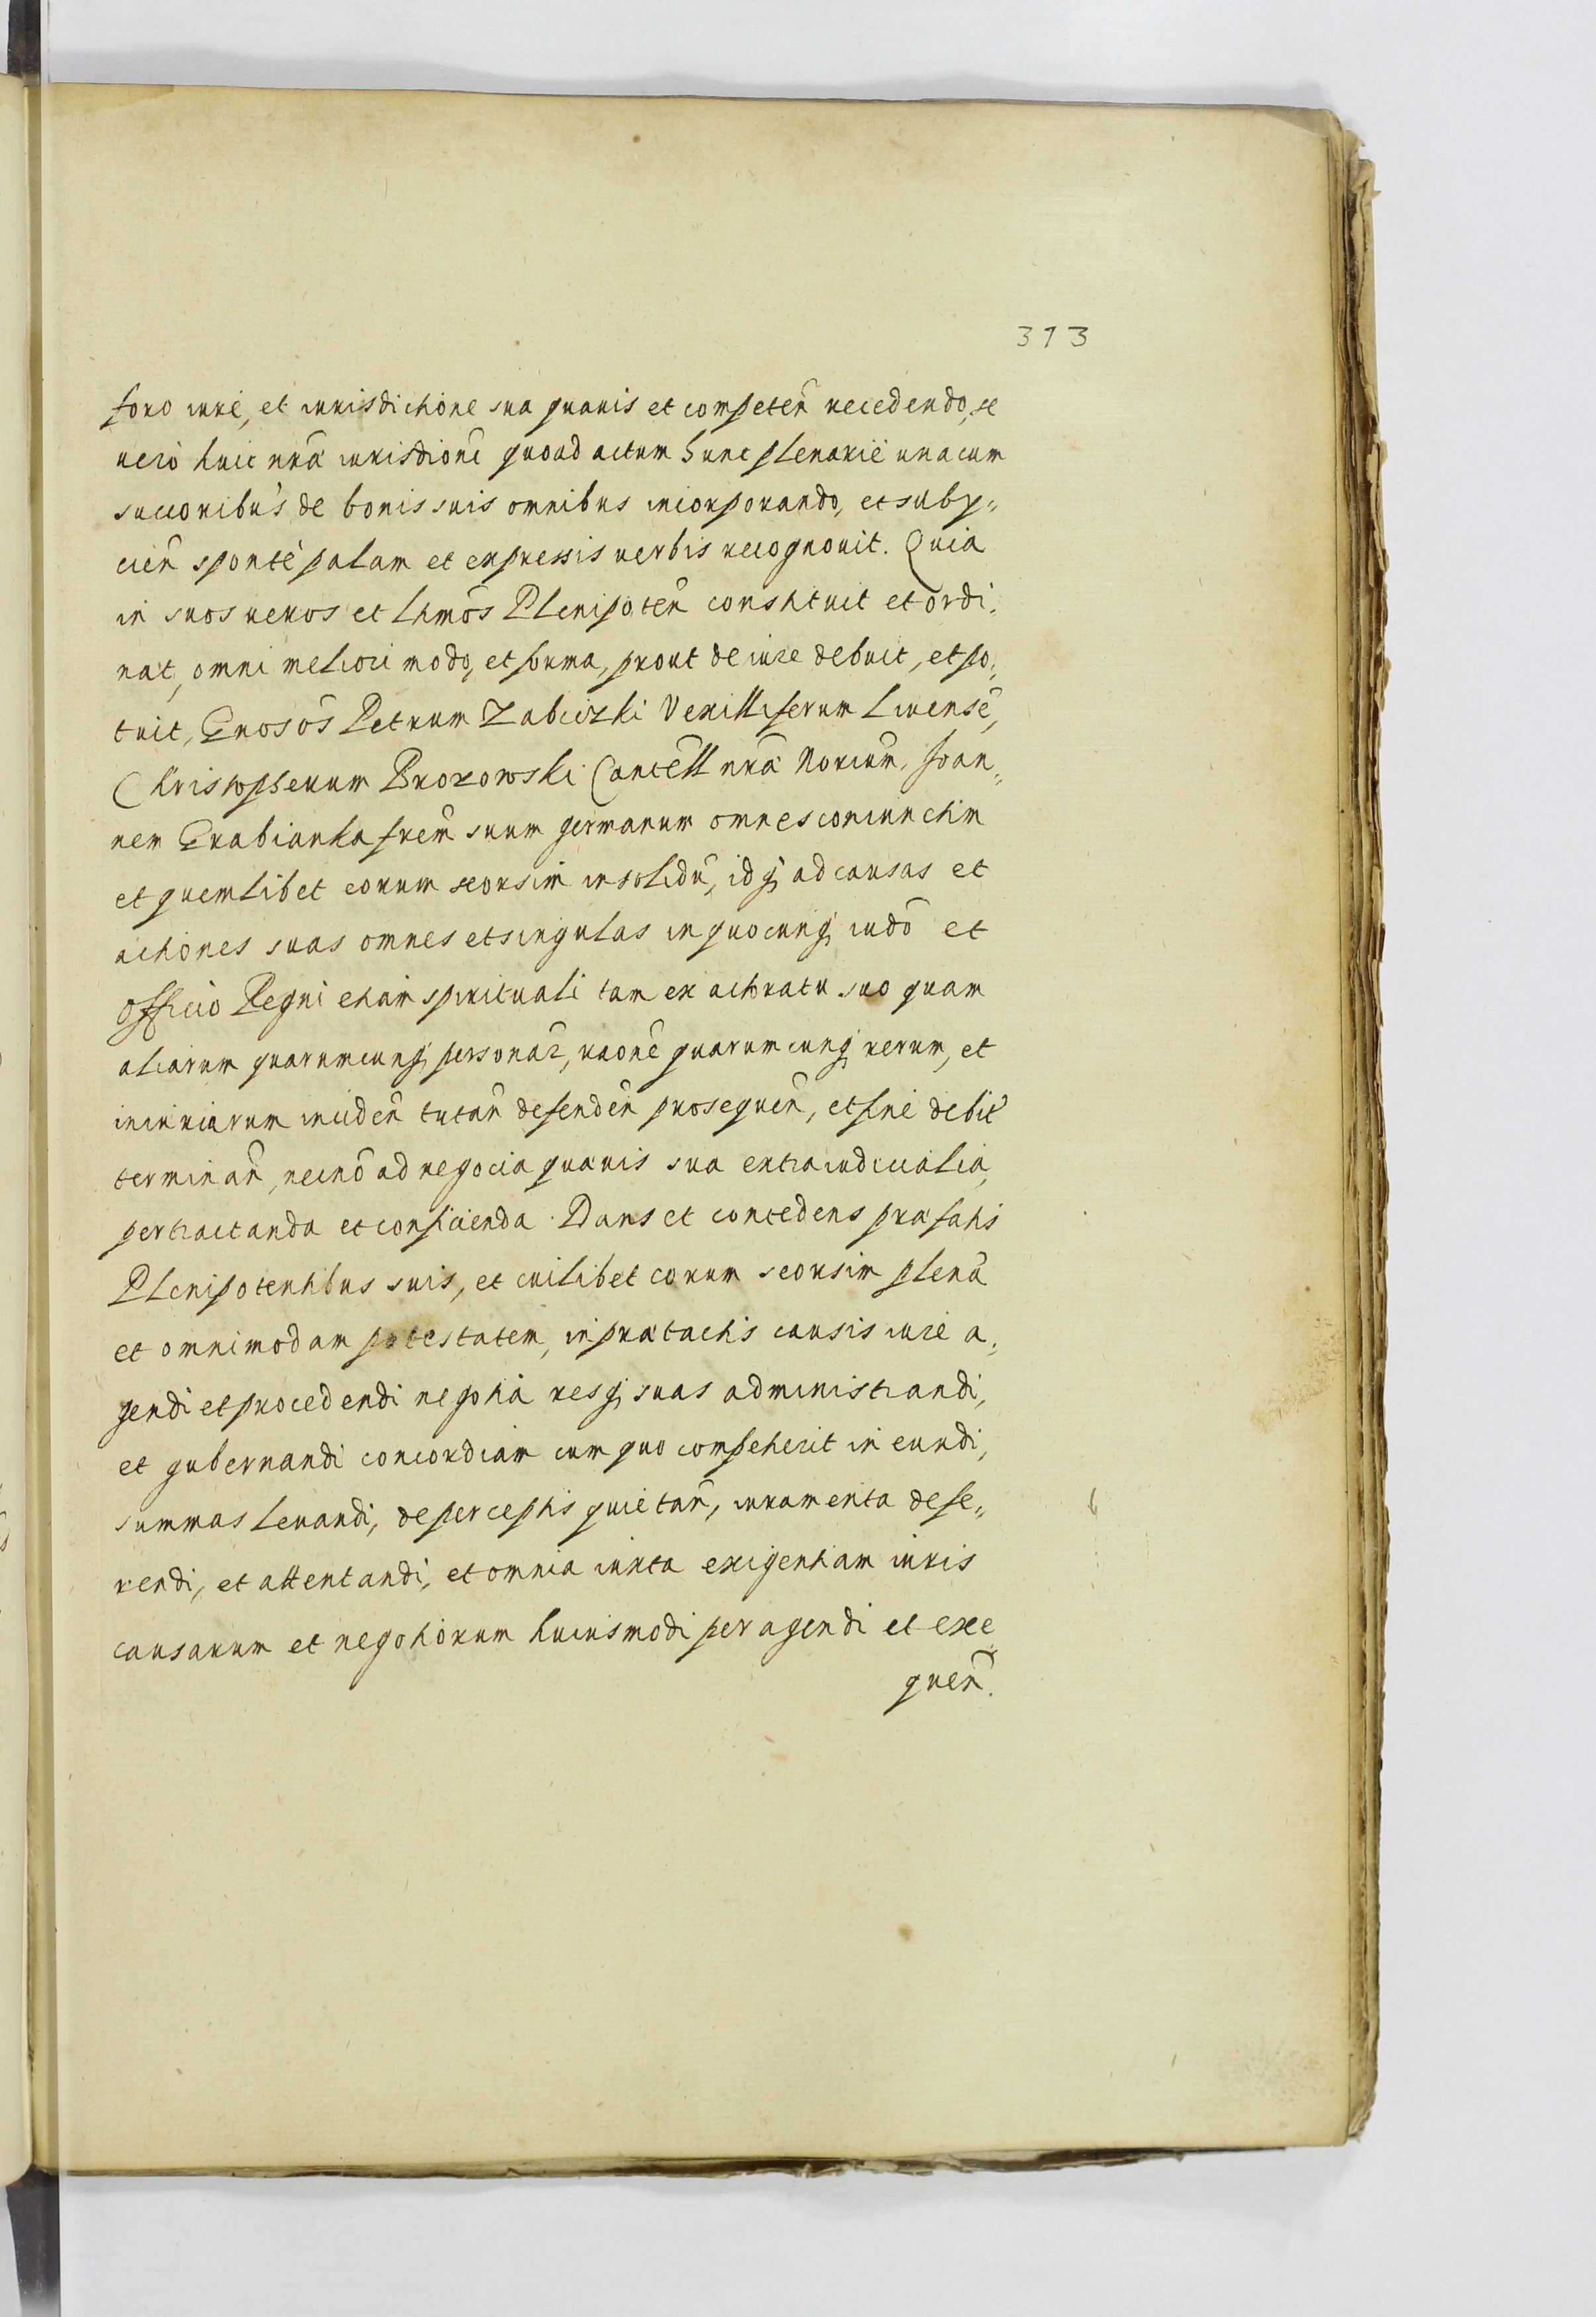 313
foro iure, et iurisdictione sua quauis et competeñ recedendo, se
uero huic nrã iurisdioñi quoad actum hunc plenarie unacum
succoribus de bonis suis omnibus incorporando, et suby„
cieñ sponte palam et expressis uerbis recognouit. Quia
in suos ueros et lt̃imos Plenipoteñ constituit et ordi„
nat, omni meliori modo, et forma, prout de iure debuit, et po„
tuit, Gnosos Petrum Zabicki Vexilliferum Liuensẽ,
Christopherum Brozowski Cancell̃ nrã Noriũm, Joan„
nem Grabianka frẽm suum germanum omnes coniunctim
et quemlibet eorum seorsim in solidũ, idq; ad causas et
actiones suas omnes et singulas in quocunq; iudõ et
Officio Regni etiam spirituali tam ex actoratu suo quam
aliarum quarumcunq; personar̃, raõne quarumcunq; rerum, et
iniuriarum inciden̄ tutañ defendeñ prosequeñ, et fine debit̃
termināñ, necnõ ad negocia quauis sua extraiudicialia,
pertractanda et conficienda. Dans et concedens præfatis
Plenipotentibus suis, et cuilibet eorum seorsim plenã
et omnimodam potestatem, in prætactis causis iure a„
gendi et procedendi negotia resq; suas administrandi,
et gubernandi concordiam cum quo competierit in eundi,
summas leuandi, de perceptis quietañ, iuramenta defe„
rendi, et attentandi, et omnia iuxta exigentiam iuris
causarum et negotiorum huiusmodi peragendi et exe„
queñ.